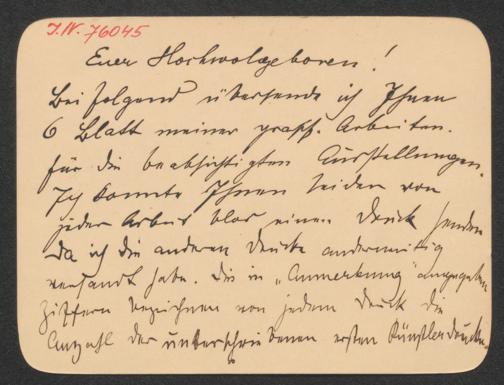 I.N. 76045
Euer Hochwolgeboren!
Beifolgend übersende ich Ihnen
6 Blatt meiner graph. Arbeiten.
für die beabsichtigten Ausstellungen.
Ich konnte Ihnen leider von
jeder Arbeit blos einen Druck senden
da ich die anderen Drucke anderweitig
versandt habe. Die in „Anmerkung" angegebenen
Ziffern bezeichnen von jedem Druck die
Anzahl der unterschriebenen ersten Künstlerdrucke.